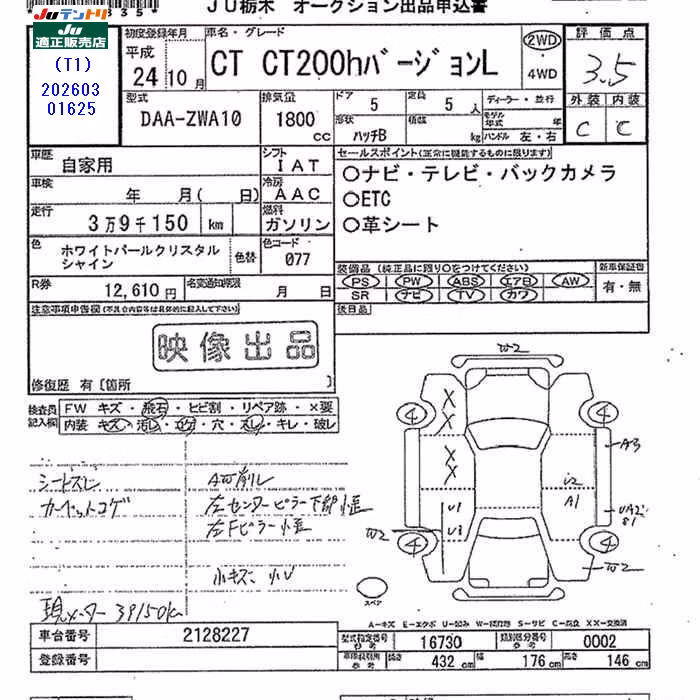 JU栃木 オークション出品申込書
JUテントリ
JU
適正販売店
(T1)
202603
01625
初度登録年月
平成
24年10月
車名・グレード
CT CT200hバージョンL
2WD
4WD
評価点
3.5
外装 内装
C C
型式
DAA-ZWA10
排気量
1800
cc
ドア
5
定員
5人
形状
ハッチB
積載
kg
ディーラー・並行
モデル年式 年
ハンドル 左・右
車歴
自家用
シフト
IAT
車検
年 月( 日)
冷房
AAC
走行
3万9千150 km
燃料
ガソリン
色
ホワイトパールクリスタル
シャイン
色替
色コード
077
R券
12,610円
名変通知期限
月 日
セールスポイント(正常に機能するものに限ります)
○ナビ・テレビ・バックカメラ
○ETC
○革シート
装備品(純正品に限り○をつけてください)
PS PW ABS エアB AW
SR ナビ TV カワ
新車保証書
有・無
後日品
注意事項申告欄(不具合内容等は具体的に記入して下さい)
映像出品
修復歴 有〔箇所 〕
検査員
記入欄
FW キズ・飛石・ヒビ割・リペア跡・×要
内装 キズ・汚レ・コゲ・穴・スレ・キレ・破レ
シートスレ
カーペットコゲ
左センターピラー下部
左Fピラー
小キズ、小U
現メーター 39150km
W2
4
4
X
X
X
X
A3
U2
A1
U1
W2
4
4
W2
スペア
A-キズ E-エクボ U-凹み W-波打板 S-サビ C-腐食 XX-交換済
車台番号
2128227
登録番号
型式指定番号
参考
16730
類別区分番号
参考
0002
長さ
432 cm
幅
176 cm
高さ
146 cm